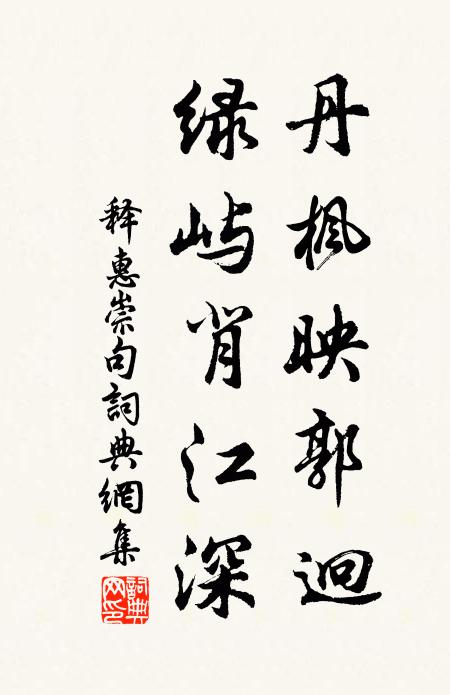 丹楓映郭迥
绿屿背江深
释惠崇句詞典網集
詞典网印